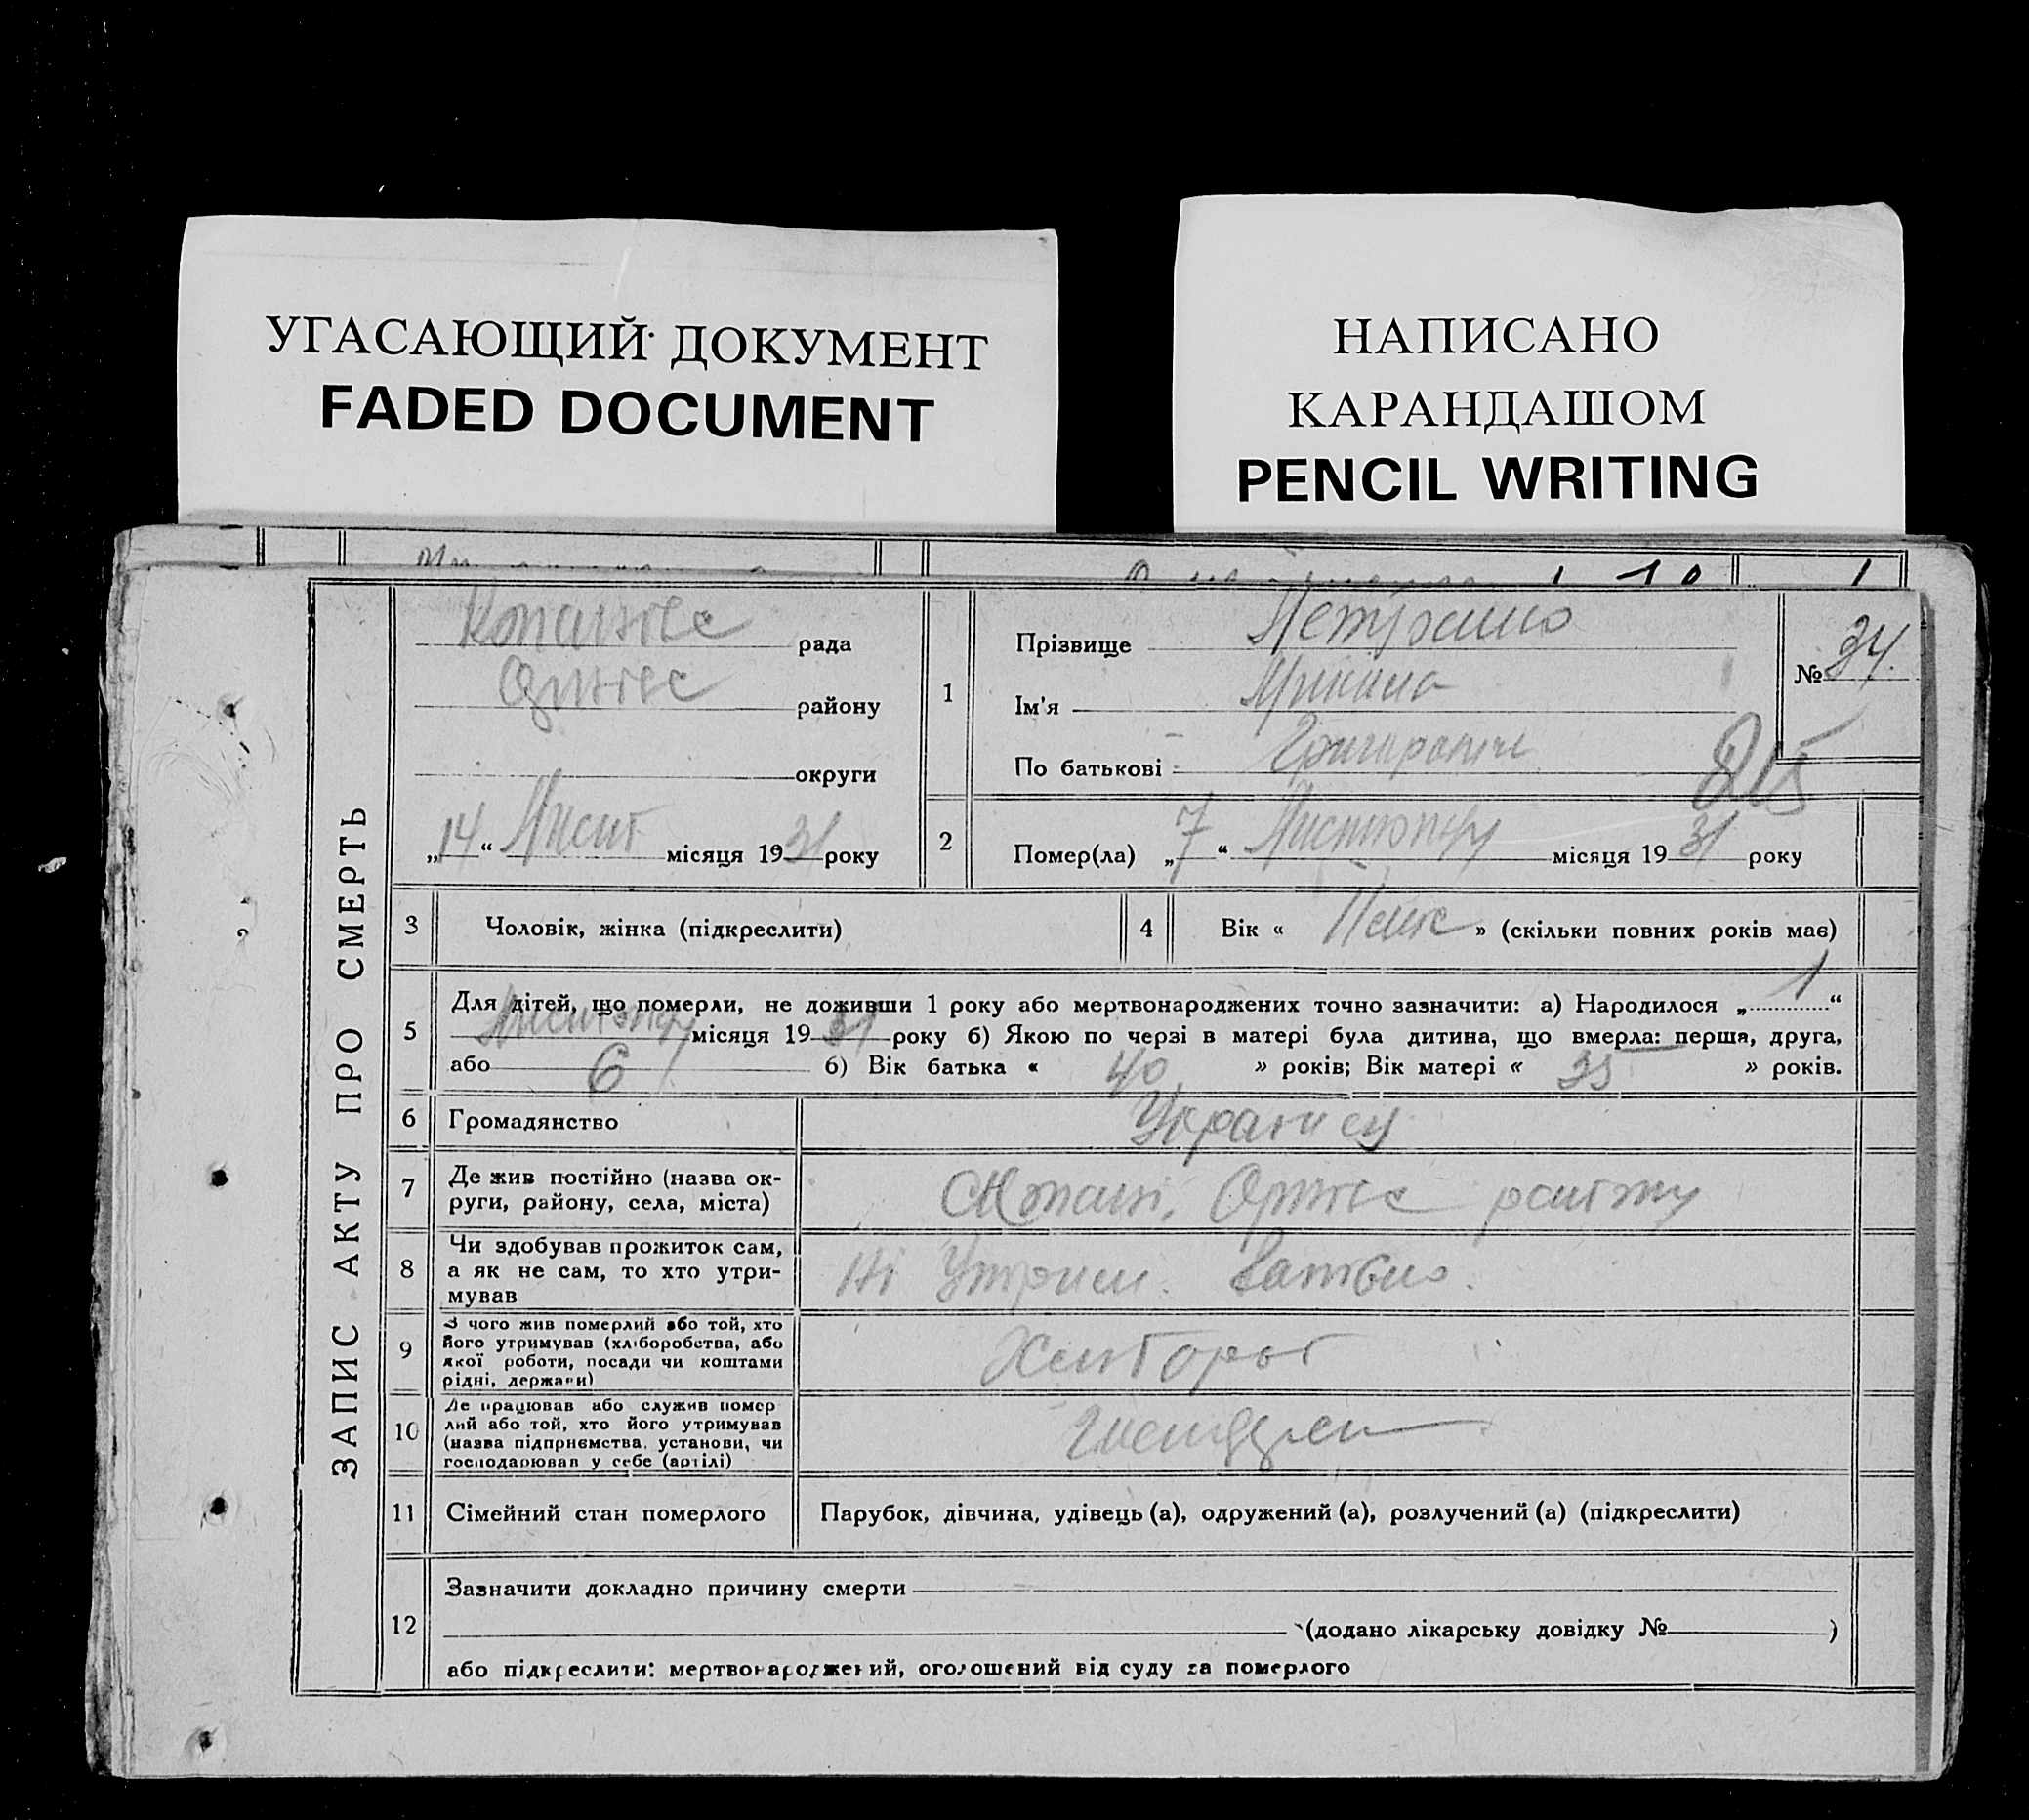 УГАСАЮЩИЙ ДОКУМЕНТ
FADED DOCUMENT
НАПИСАНО
КАРАНДАШОМ
PENCIL WRITING
ЗАПИС АКТУ ПРО СМЕРТЬ
рада
району
округи
„14“ місяця 1931 року
1
Прізвище
Ім'я Микита
По батькові
№ 34.
2
Помер(ла) „7“ Листопаду місяця 1931 року
3 Чоловік, жінка (підкреслити)
4 Вік « » (скільки повних років має)
5 Для дітей, що померли, не доживши 1 року або мертвонароджених точно зазначити: а) Народилося „1“
Листопаду місяця 1931 року б) Якою по черзі в матері була дитина, що вмерла: перша, друга,
або 6 б) Вік батька « 40 » років; Вік матері « 35 » років.
6 Громадянство
7 Де жив постійно (назва ок-
руги, району, села, міста)
8 Чи здобував прожиток сам,
а як не сам, то хто утри-
мував
Ні Утрим. батько.
9 З чого жив померлий або той, хто
його утримував (хліборобства, або
якої роботи, посади чи коштами
рідні, держави)
10 Де працював або служив помер
лий або той, хто його утримував
(назва підприємства, установи, чи
господарював у себе (артілі)
11 Сімейний стан померлого
Парубок, дівчина, удівець (а), одружений (а), розлучений (а) (підкреслити)
12 Зазначити докладно причину смерти
(додано лікарську довідку № )
або підкреслити: мертвонароджений, оголошений від суду за померлого